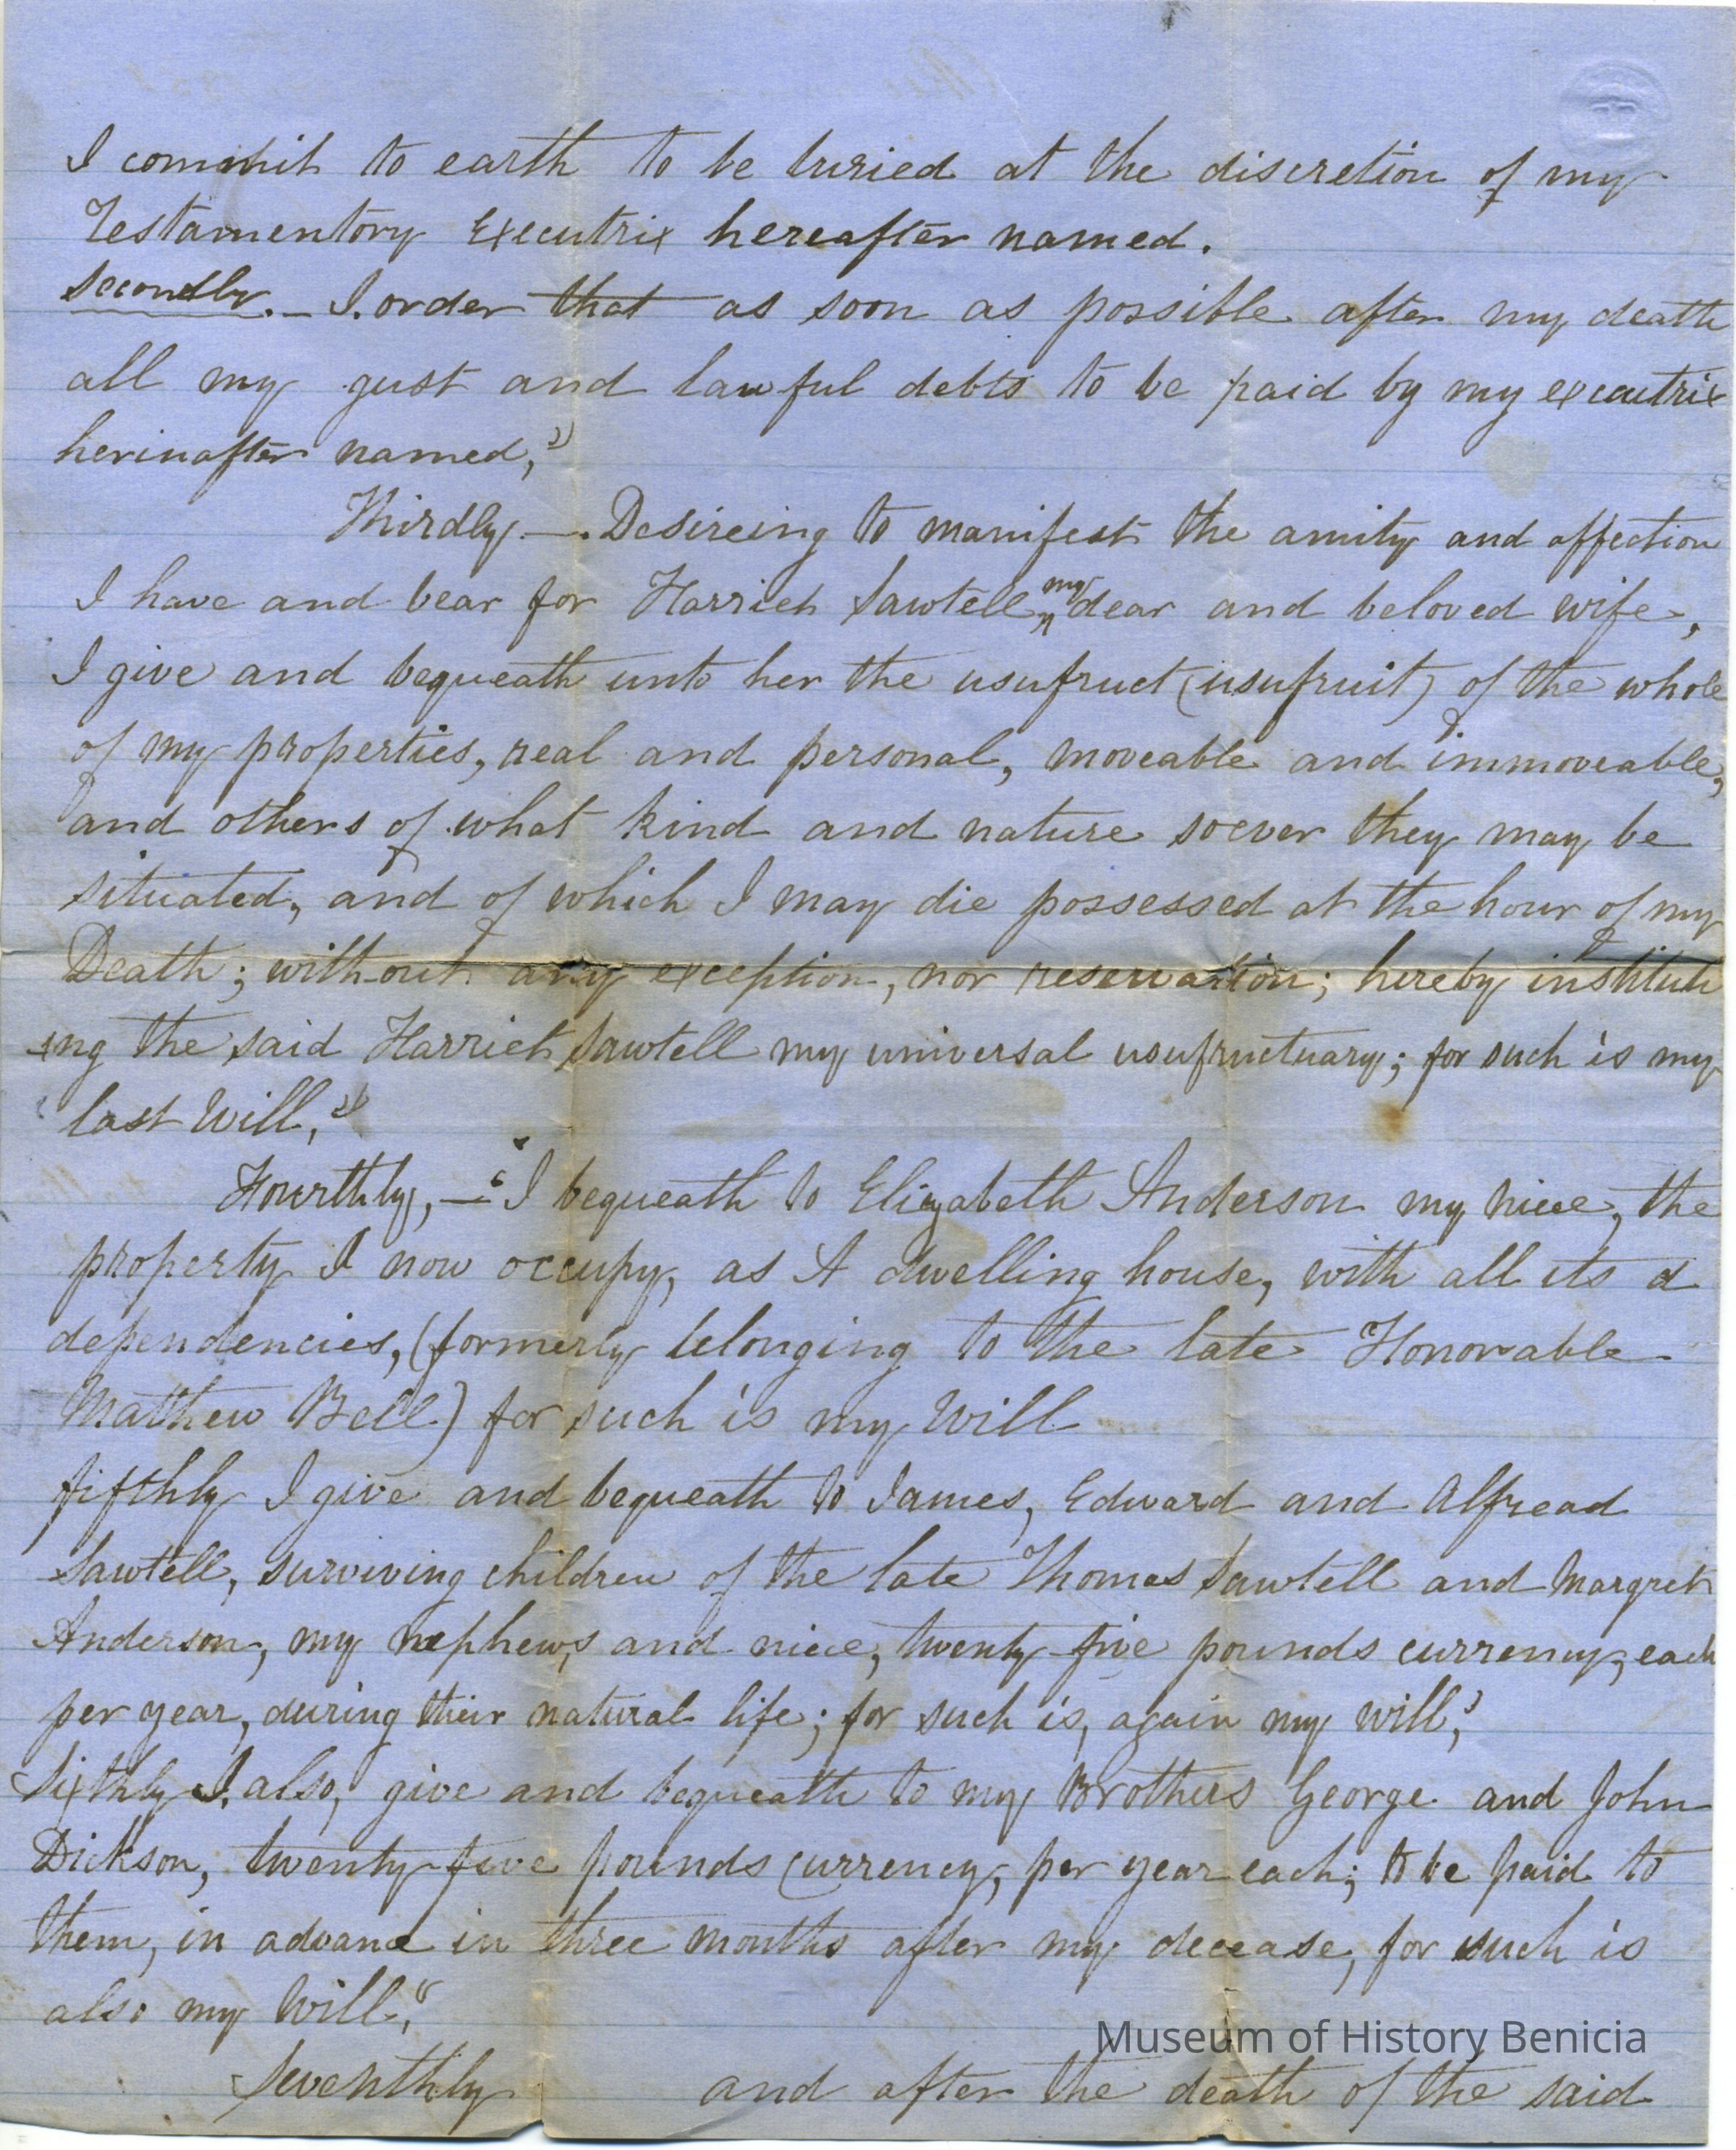 I commit to earth to be buried at the discretion of my
Testamentory Executrix hereafter named.
Secondly. — I. order that as soon as possible after my death
all my just and lawful debts to be paid by my executrix
herinafter named,"
Thirdly. —. Desireing to manifest the amity and affection
I have and bear for Harriet Sawtell my dear and beloved wife,
I give and bequeath unto her the usufruct (usufruit) of the whole
of my properties, real and personal, moveable and immoveable,
and others of what kind and nature soever they may be
situated, and of which I may die possessed at the hour of my
Death; without any exception, nor reservation; hereby institut
-ing the said Harriet Sawtell my universal usufructuary; for such is my
last Will,"
Fourthly, — "I bequeath to Elizabeth Anderson my niece, the
property I now occupy, as A dwelling house, with all its d
dependencies, (formerly belonging to the late Honorable
Matthew Bell) for such is my Will
fifthly I give and bequeath to James, Edward and Alfread
Sawtell, surviving children of the late Thomas Sawtell and Margret
Anderson, my nephews, and niece, twenty-five pounds currency, each
per year, during their natural life; for such is, again my will,"
Sixthly I, also, give and bequeath to my Brothers George and John
Dickson, twenty-five pounds currency, per year each; to be paid to
them, in advance in three months after my decease, for such is
also my Will,"
Museum of History Benicia
Seventhly and after the death of the said